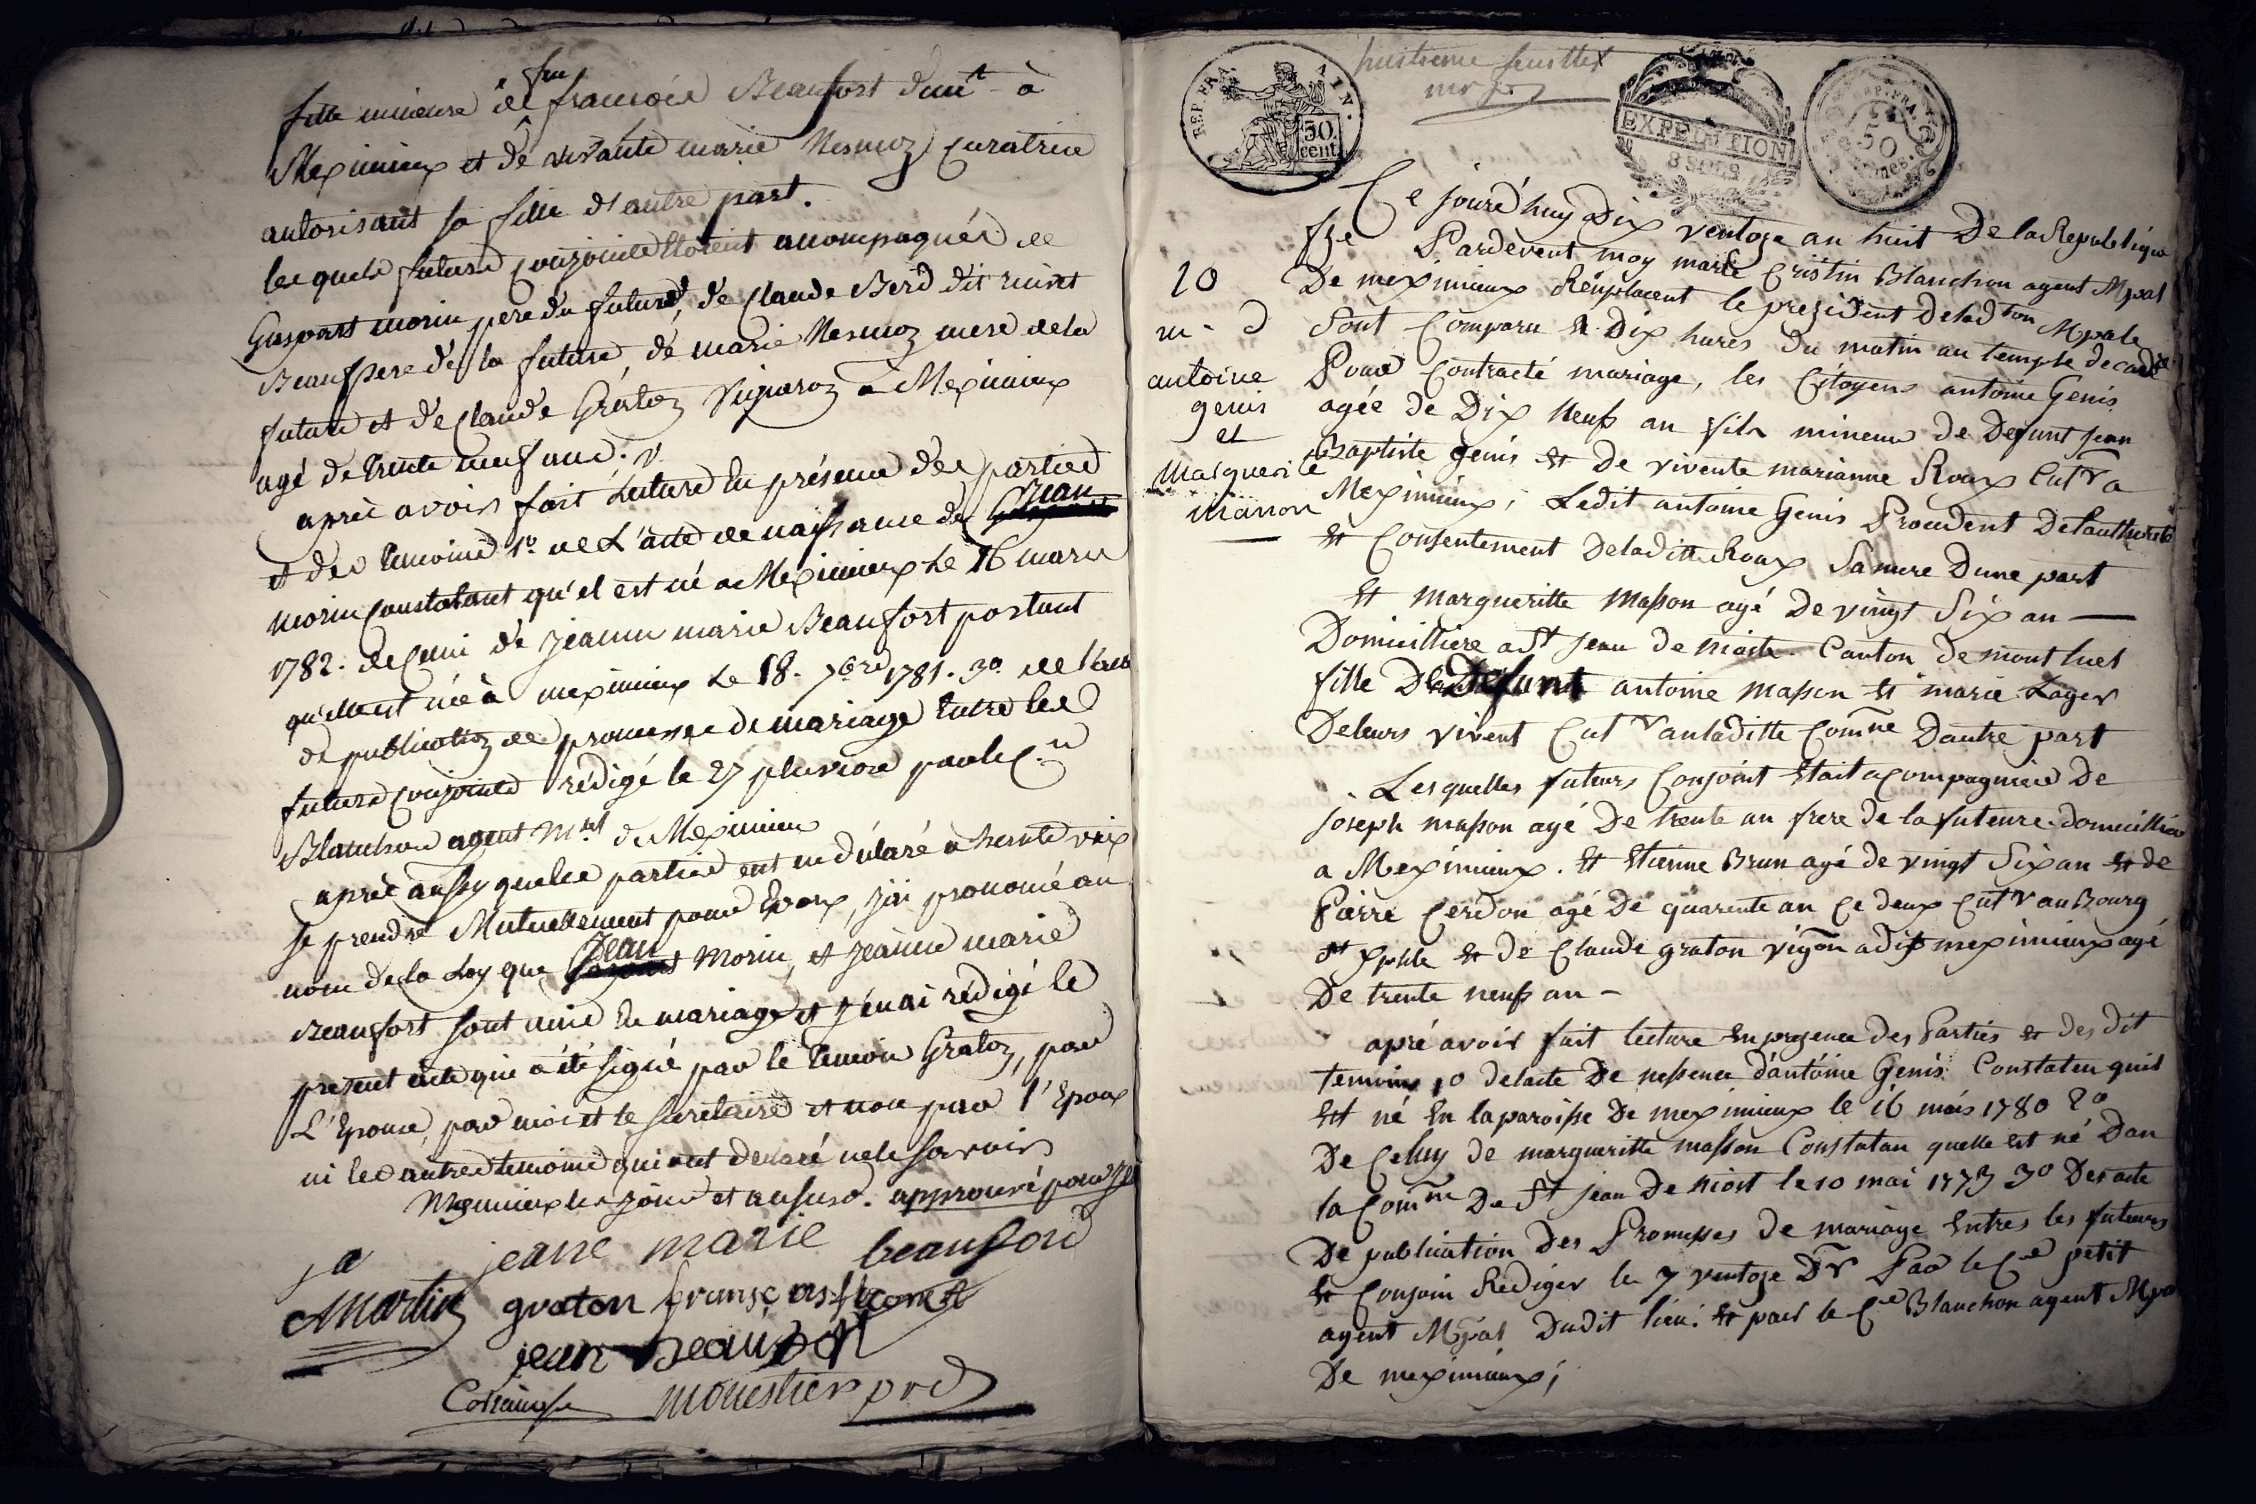 fille mineure de feu francois Beaufort dem.t à
Meximieux et de vivante marie Nesmoz curatrice
autorisant sa fille d'autre part.
lesquels futurs conjoints étoient acompagnés de
Gaspart morin pere du futur, de Claude Berd dit
Beaufpere de la future, de marie Nesmoz mere de la
future et de Claude Graton Vigneron a Meximieux
agé de trente neuf ans.
après avoir fait Lecture En présence des parties
et des témoins 1.o de L'acte de naissance de Jean
morin Constatant qu'il est né a Meximieux le 16 mars
1782. de celui de Jeanne marie Beaufort portant
qu'elle est née à meximieux le 18. 7bre 1781. 3o. de l'acte
de publication de promesse de mariage Entre les
futurs conjoints rédigé le 27 pluviose par le C.en
Blanchon agent M.pal de Meximieux
après aussy que les parties ont eu déclaré a haute voix
se prendre Mutuellement pour Epoux, j'ai prononcé au
nom de la Loy que Jean Morin, et Jeanne marie
Beaufort sont unis En mariage et j'en ai rédigé le
présent acte qui a été signé par le temoin Graton, par
L'Epouse, par moi et le secretaire et non par l'Epoux
ni les autres temoins qui ont déclaré ne le savoir
Meximieux les jour et an susd. approuvé
jeane marie beauford
Martin graton françois
jean Beaufort
monestier
huitieme feuillet
REP. FRA.
AIN.
50 cent.
EXPEDITION
REP. FRA.
50
Ce jourd'huy Dix ventose an huit De la Republique
fse Pardevent moy marie Cristin Blanchon agent Mpal
10 De meximieux Remplacent le president delad ton Mpale
m. d Sont Comparu Et Dix hures du matin au temple decade
antoine Pour Contracté mariage, les Citoyens antoine Genis
genis agée de Dix Neuf an fils mineur de Defunt jean
et Baptiste genis Et De vivente marianne Roux Cutr a
Marguerite Meximieux, Ledit antoine Genis Procedent De l'autherité
Masson Et Consentement Deladitte Roux Sa mere Dune part
Et Margueritte Masson agé De vingt Six an —
Domicilliere a St jean de Niost Canton de mont luel
fille De Defunt antoine masson Et marie Loger
Deleurs vivent Cutr aula ditte Comne Dautre part
Lesquelles futeurs Conjoint Etait acompagniée De
Joseph masson agé De trente an frere de la futeure domicillié
a Meximieux. Et Etienne Brun agé de vingt Six an Et de
Pierre Cerdon agé De quarente an Ce deux Cutr au Bourg
St Xphle Et de Claude graton vigon adit meximieux agé
De trente neuf an —
apré avoir fait lecture En presence des Parties Et des dit
temoins 1o delacte De nessence d'antoine Genis Constaten quil
Est né En la paroisse De meximieux le 16 mars 1780 2o
De Celuy de margueritte masson Constatan quelle est né Dan
la Comne De St jean De Niost le 10 mai 1773 3o Des acte
De publication Des Promesses de mariage Entres les futeurs
Et Conjoin Rediger le 7 ventose Dr Par le Cen petit
agent Mpal Dudit lieu: Et par le Cen Blanchon agent Mpal
De meximieux;